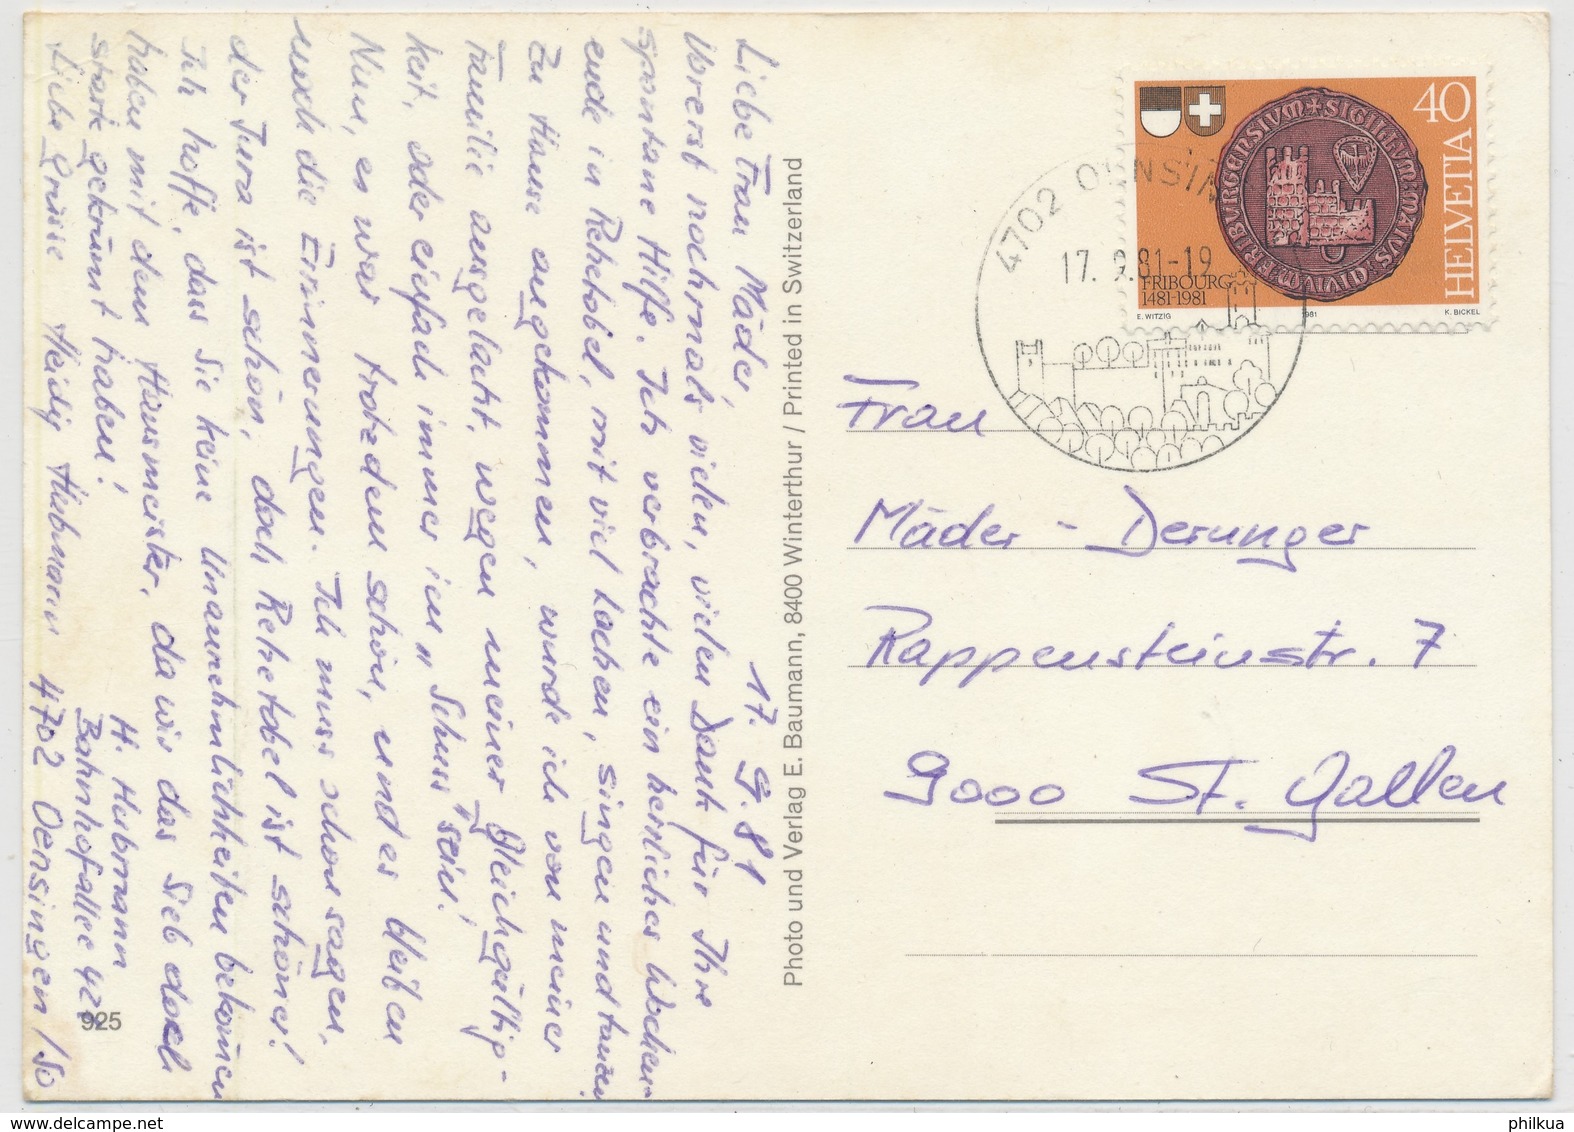 17. 9. 81
Liebe Frau Mäder,
Vorerst nochmals vielen, vielen Dank für Ihre
spontane Hilfe. Ich verbrachte ein herrliches Wochen-
ende in Rehetobel, mit viel Lachen, singen und tanzen
Zu Hause angekommen, wurde ich von meiner
Familie ausgelacht, wegen meiner Gleichgültig-
keit, oder einfach immer im „Schuss" sein!
Nun, es war trotzdem schön, und es bleiben
noch die Erinnerungen. Ich muss schon sagen,
der Jura ist schön, doch Rehetobel ist schöner!
Ich hoffe, dass Sie keine Unannehmlichkeiten bekommen
haben mit dem Hausmeister, da wir das Sieb doch
stark gekrümt haben!
Liebe Grüsse Heidy Heibmann
H. Heibmann
Bahnhofallee 422
4702 Oensingen / SO
925
Photo und Verlag E. Baumann, 8400 Winterthur / Printed in Switzerland
4702 OENSINGEN
17. 9. 81-19
40
HELVETIA
FRIBOURG
1481-1981
E. WITZIG
1981
K. BICKEL
Frau
Mäder - Derunger
Rappensteinstr. 7
9000 St. Gallen
philkua